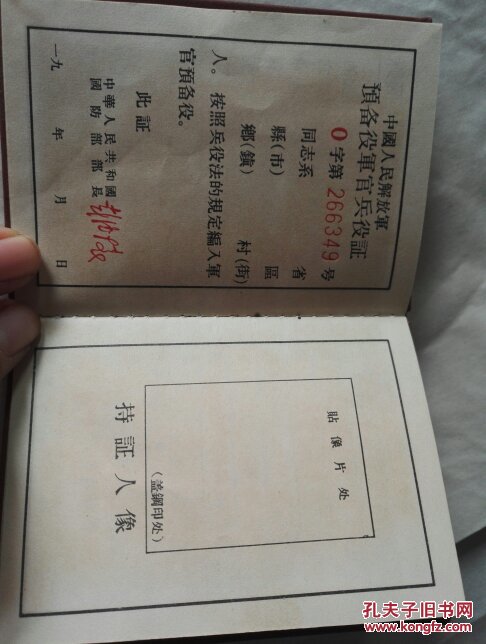 中國人民解放軍
預备役軍官兵役証
O字第 266349 号
同志系 省
縣(市) 區
鄉(鎮) 村(街)
人。按照兵役法的規定編入軍
官預备役。
此証
中華人民共和國
國防部部長
一九 年 月 日
貼像片处
(盖鋼印处)
持証人像
孔夫子旧书网